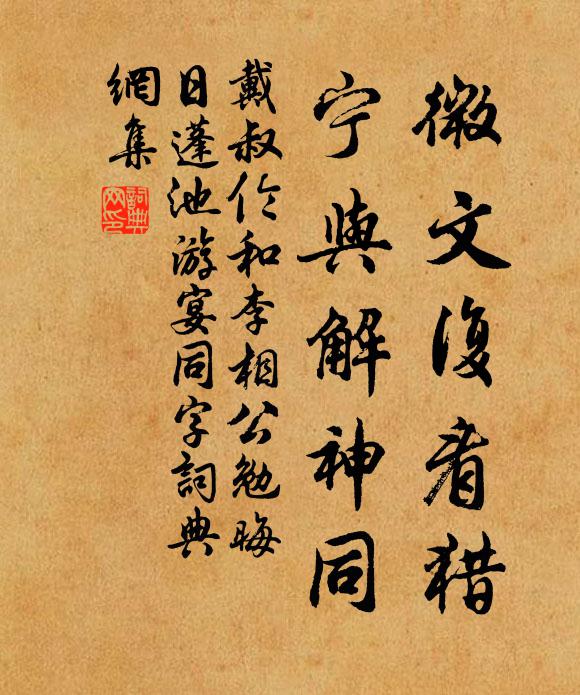 微文復看猎
宁與解神同
戴叔伦和李相公勉晦
日蓬池游宴同字詞典
網集
詞典
网印